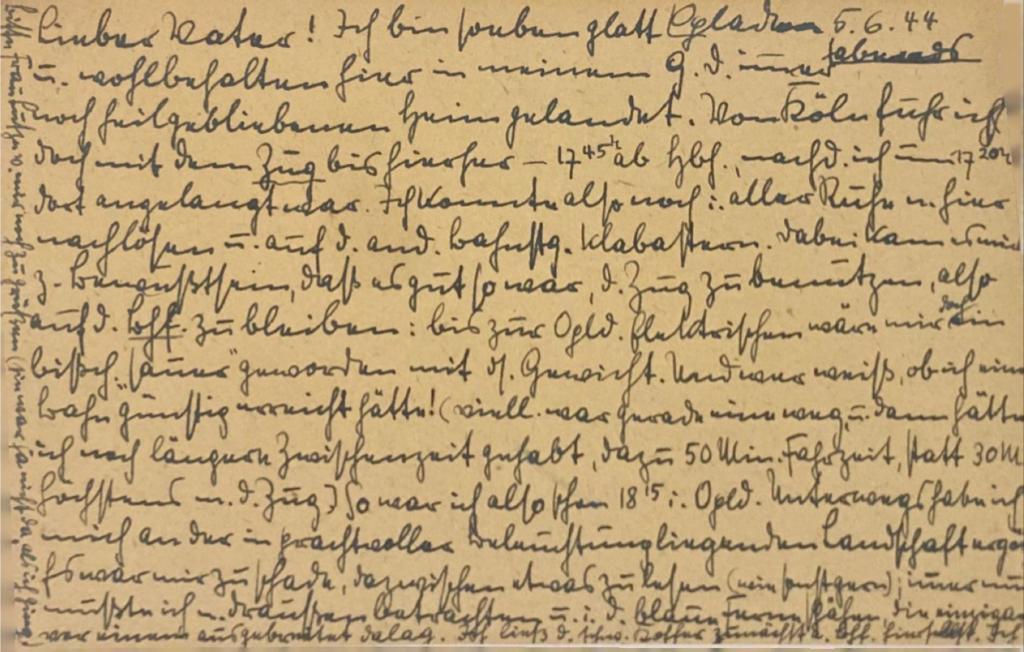 Lieber Vater! Ich bin soeben glatt Opladen 5.6.44
abends
u. wohlbehalten hier in meinem G. d. immer
noch heilgebliebenen Heim gelandet. Von Köln fuhr ich
doch mit dem Zug bis hierher – 17 45 h ab Hbf., nachd. ich um 17 20 h
dort angelangt war. Ich konnte also noch i. aller Ruhe n. hier
nachlösen u. auf d. and. Bahnstg. klabastern. Dabei kam es mir
z. Bewußtsein, daß es gut so war, d. Zug zu benutzen, also
auf d. Bhf. zu bleiben: bis zur Opld. Elektrischen wäre mir doch ein
bißch. "sauer" geworden mit ds. Gewicht. Und wer weiß, ob ich eine
Bahn günstig erreicht hätte! (viell. war gerade eine weg, u. dann hätte
ich noch längere Zwischenzeit gehabt, dazu 50 Min. Fahrzeit, statt 30 M
höchstens m. d. Zug.) So war ich also schon 18 15 i. Opld. Unterwegs habe ich
mich an der in prachtvoller Beleuchtung liegenden Landschaft ergö
Es war mir zu schade, dazwischen etwas zu lesen (wie sonst gern); immer nu
mußte ich n. draußen betrachten u. i. d. blaue Ferne sehen, die einzigar
vor einem ausgebreitet dalag. Ich ließ d. schw. Koffer zunächst a. Bhf. hier Ich
bitte Frau v. mir noch zu grüßen (sie war ja nicht da, als ich ging)